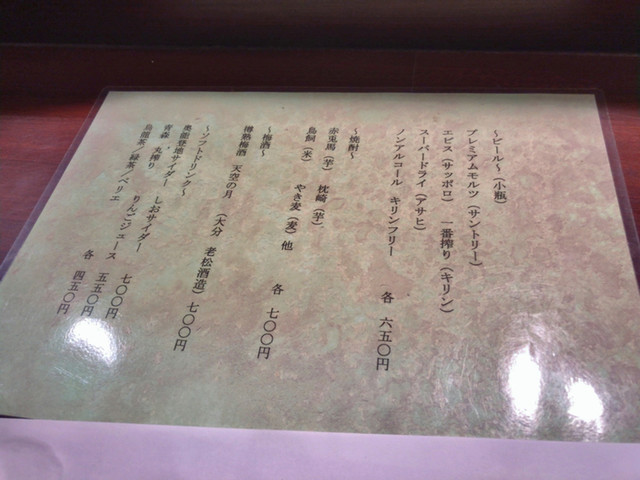 ～ビール～（小瓶）
プレミアムモルツ（サントリー）
エビス（サッポロ）　一番搾り（キリン）
スーパードライ（アサヒ）
ノンアルコール　キリンフリー　各　六五〇円
～焼酎～
赤兎馬（芋）　枕崎（芋）
鳥飼（米）　やき麦（麦）他　各　七〇〇円
～梅酒～
樽熟梅酒　天空の月　（大分　老松酒造）七〇〇円
～ソフトドリンク～
奥能登地サイダー　しおサイダー　七〇〇円
青森・丸搾り　りんごジュース　五五〇円
烏龍茶／緑茶／ペリエ　各　四五〇円